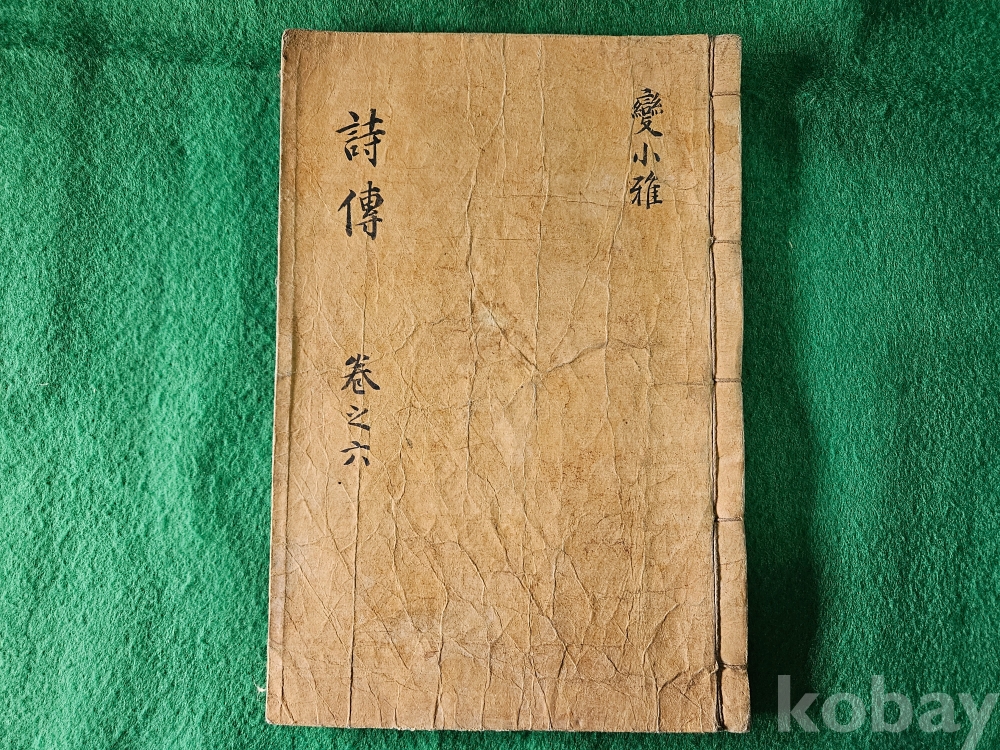 變小雅
詩傳
卷之六
kobay